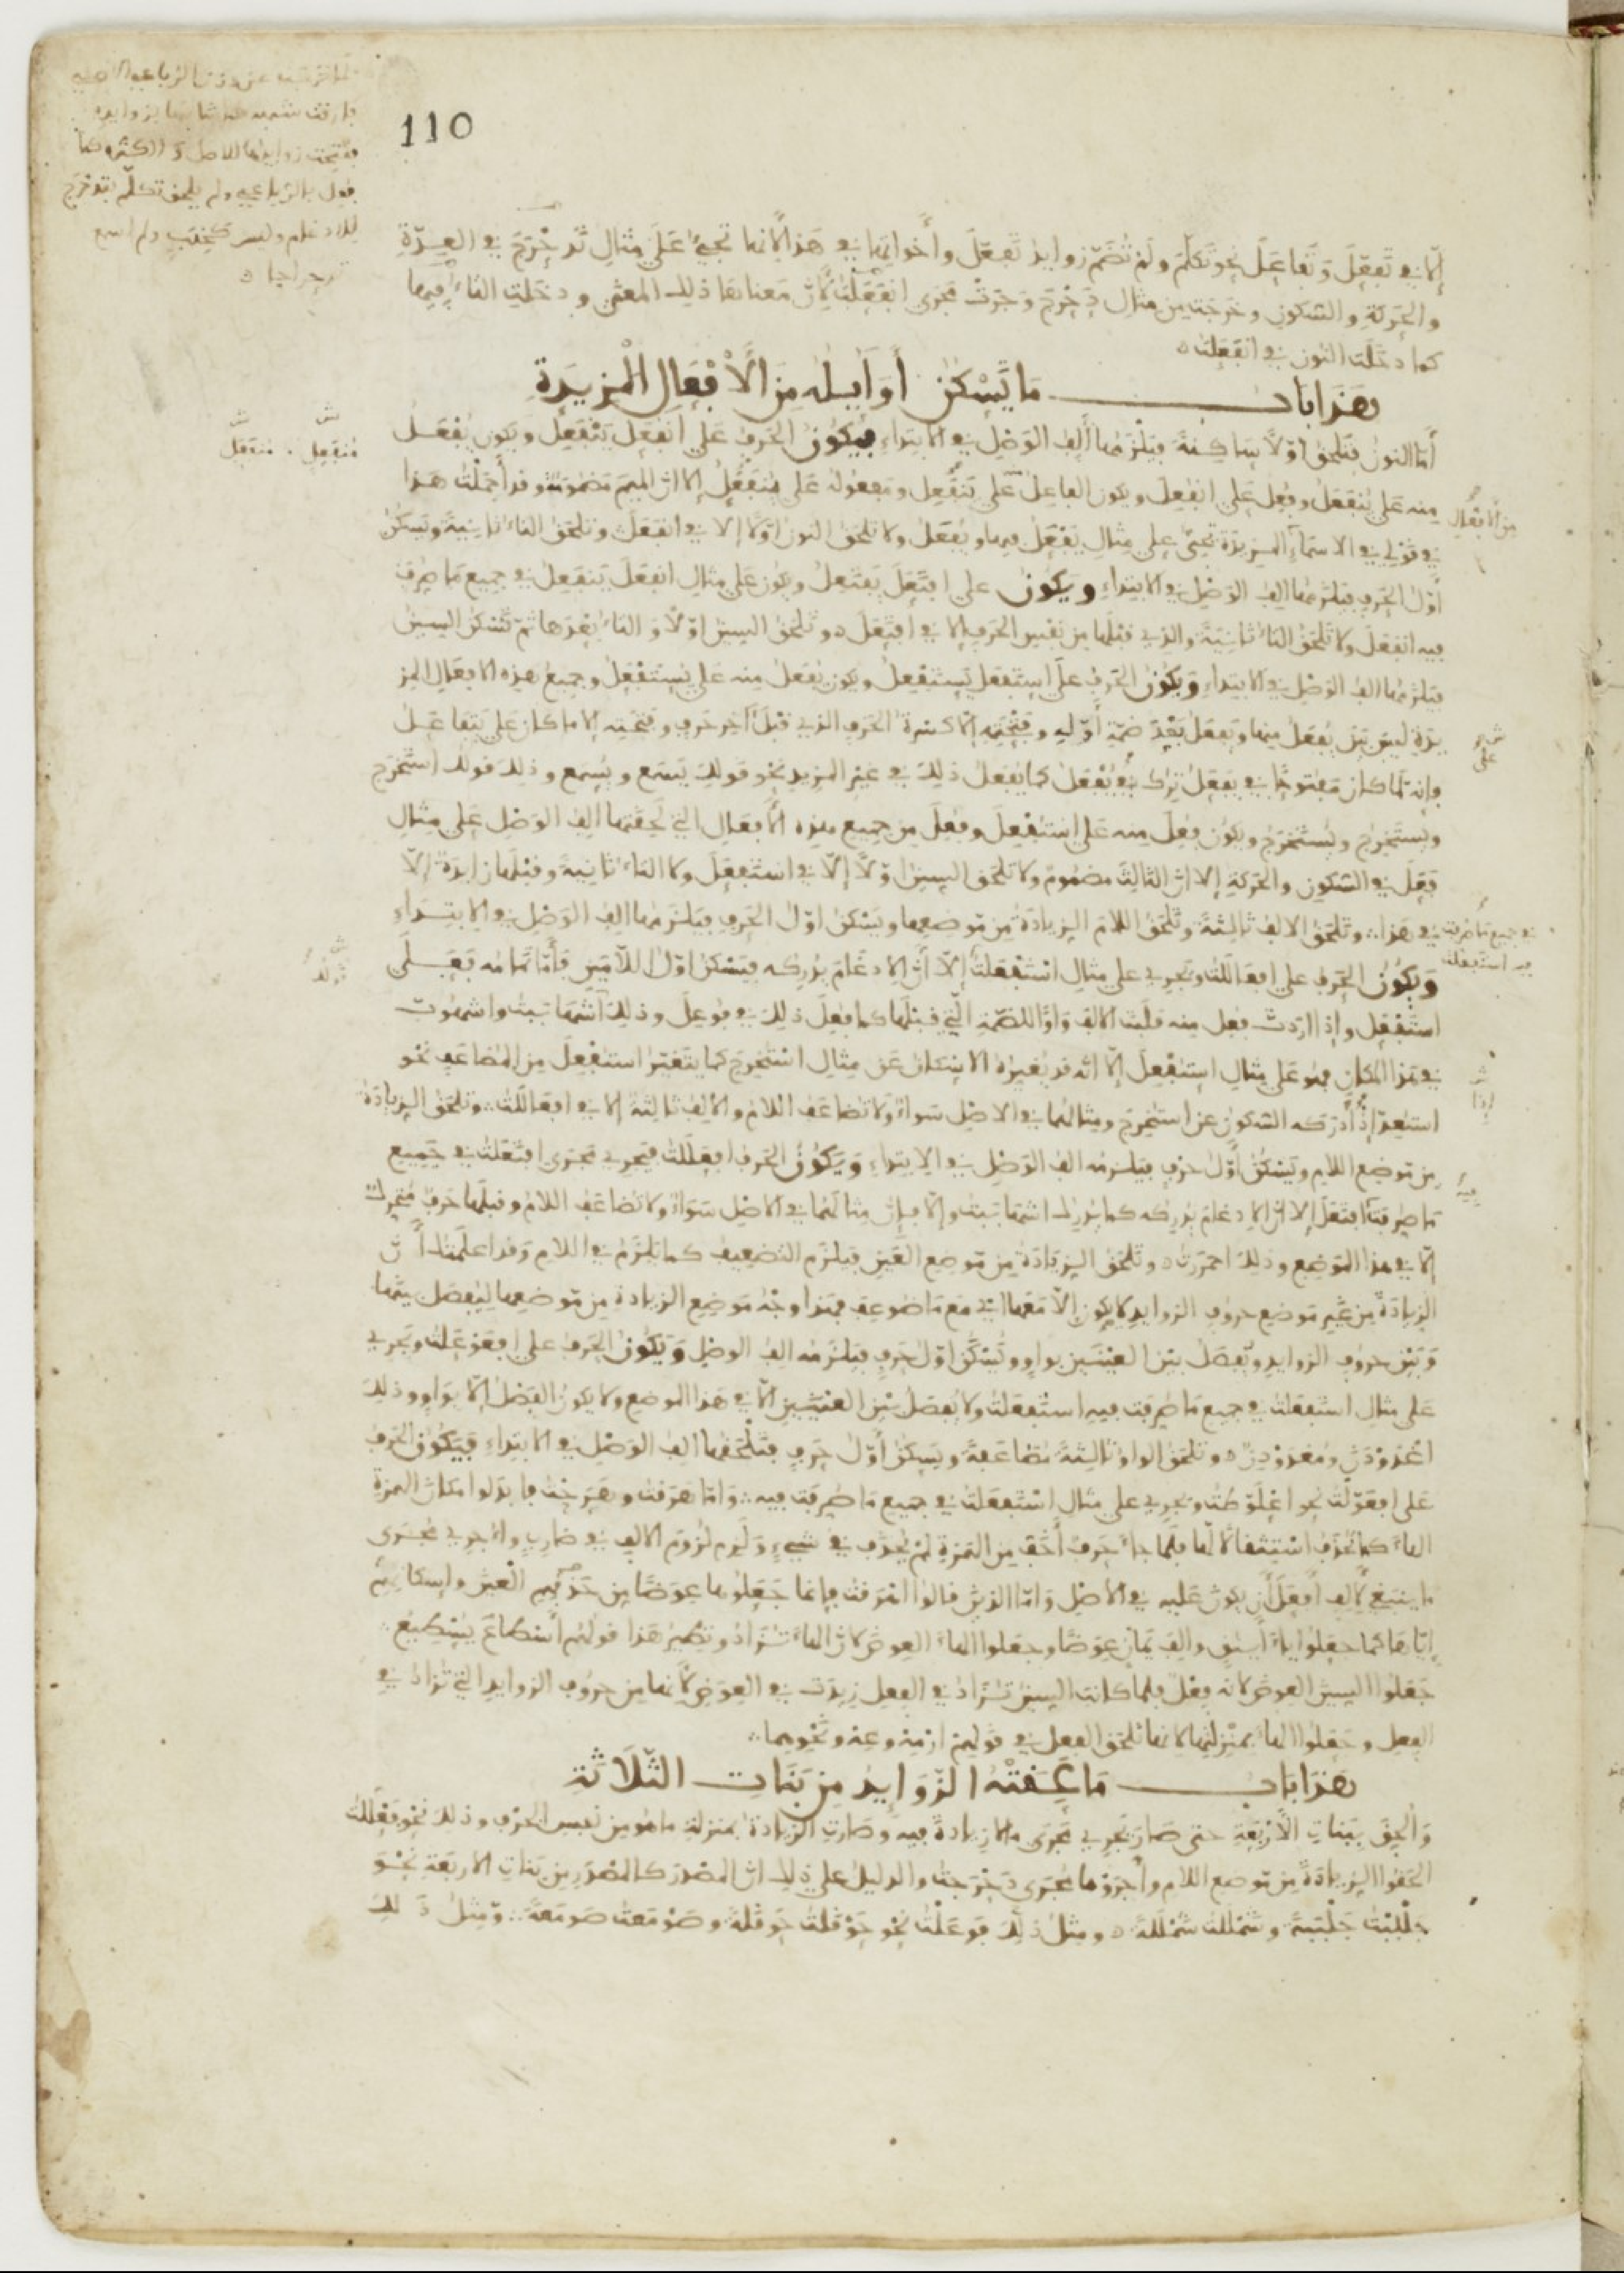 110
إلا في تفعل وتفاعل نحو تكلم ولم تضم زوايد تفعل وأخواتها في هذا لأنها تجيء على مثال تدحرج في العدة
والحركة والسكون وخرجت من مثال دحرج وجرت مجرى انفعلت لأن معناها ذلك المعنى ودخلت التاء فيها
كما دخلت النون في انفعلت ه
هذا باب ما تسكن أوايله من الأفعال المزيدة
أما النون فتلحق أولا ساكنة فيلزمها ألف الوصل في الابتداء فيكون الحرف على انفعل ينفعل ويكون يفعل
منه على ينفعل وفعل على انفعل ويكون الفاعل على منفعل ومفعوله على منفعل إلا أن الميم مضمومة وقد أجملت هذا
في قولي في الأسماء المزيدة تجيء على مثال يفعل فيها ويفعل ولا تلحق النون أولا إلا في انفعل وتلحق التاء ثانية وتسكن
أول الحرف فيلزمها ألف الوصل في الابتداء ويكون على افتعل يفتعل ويكون على مثال انفعل ينفعل في جميع ما صرفت
فيه انفعل ولا تلحق التاء ثانية والذي قبلها من نفس الحرف إلا في افتعل ه وتلحق السين أولا والتاء بعدها ثم تسكن السين
فيلزمها ألف الوصل في الابتداء ويكون الحرف على استفعل يستفعل ويكون يفعل منه على يستفعل وجميع هذه الأفعال المز
يدة ليس بين يفعل منها ويفعل بعد ضمة أوله وفتحته إلا كسرة الحرف الذي قبل آخر حرف وفتحته إلا ما كان على يتفاعل
فإنه لما كان مفتوحا في يفعل ترك في يفعل كما يفعل ذلك في غير المزيد نحو قولك يسمع ويسمع وذلك قولك استخرج
ويستخرج ويستخرج ويكون فعل منه على استفعل وفعل من جميع هذه الأفعال التي لحقتها ألف الوصل على مثال
فعل في السكون والحركة إلا أن الثالث مضموم ولا تلحق السين أولا إلا في استفعل ولا التاء ثانية وقبلها زايدة إلا
في هذا وتلحق الألف ثالثة وتلحق اللام الزيادة من موضعها ويسكن أول الحرف فيلزمها ألف الوصل في الابتداء
ويكون الحرف على افعاللت وتجري على مثال استفعلت إلا أن الإدغام يدركه فيسكن أول اللامين فأما تمامه فعلى
استفعل وإذا أردت فعل منه قلبت الألف واوا للضمة التي قبلها كما فعل ذلك في فوعل وذلك اشهاببت واشهوب
في هذا المكان فهو على مثال استفعل إلا أنه قد يغيره الإسكان عن مثال استخرج كما يتغير استفعل من المضاعف نحو
استعد إذ أدركه السكون عن استخرج ومثالهما في الأصل سواء ولا تضاعف اللام والألف ثالثة إلا في افعاللت وتلحق الزيادة
من موضع اللام ويسكن أول حرف فيلزمه ألف الوصل في الابتداء ويكون الحرف افعللت فيجري مجرى افتعلت في جميع
ما صرفت افتعل إلا أن الإدغام يدركه كما يدرك اشهاببت وإلا فإن مثالهما في الأصل سواء ولا تضاعف اللام وقبلها حرف متحرك
إلا في هذا الموضع وذلك احمررت ه وتلحق الزيادة من موضع العين فيلزم التضعيف كما يلزم في اللام وقد أعلمتك أن
الزيادة من غير موضع حروف الزوايد لا يكون إلا معها أي مع ما ضوعف فهذا وجه موضع الزيادة من موضعها ليفصل بينها
وبين حروف الزوايد ويفصل بين العينين بواو وتسكن أول حرف فيلزمه ألف الوصل ويكون الحرف على افعوعلت ويجري
على مثال استفعلت في جميع ما صرفت فيه استفعلت ولا يفصل بين العينين إلا في هذا الموضع ولا يكون الفصل إلا بواو وذلك
اغدودن ومغدودن ه وتلحق الواو ثالثة مضاعفة ويسكن أول حرف فتلحقها ألف الوصل في الابتداء فيكون الحرف
على افعولت نحو اعلوطت ويجري على مثال استفعلت في جميع ما صرفت فيه وأما هرقت وهرحت فأبدلوا مكان الهمزة
الهاء كما تحذف استثقالا لها فلما جاء حرف أخف من الهمزة لم يحذف في شيء ولزم لزوم الألف في ضارب وأجري مجرى
ما ينبغي لألف أفعل أن يكون عليه في الأصل وأما الذين قالوا اهرقت فإنما جعلوها عوضا من حذفهم العين وإسكانهم
إياها كما جعلوا ياء أينق وألف يمان عوضا وجعلوا الهاء العوض لأن الهاء تزاد ونظير هذا قولهم أسطاع يسطيع
جعلوا السين العوض لأنه فعل فلما كانت السين تزاد في الفعل زيدت في العوض لأنها من حروف الزوايد التي تزاد في
الفعل وجعلوا الهاء بمنزلتها لأنها تلحق الفعل في قولهم ارمه وعه ونحوهما
هذا باب ما لحقته الزوايد من بنات الثلاثة
وألحق ببنات الأربعة حتى صار يجري مجرى ما لا زيادة فيه وصارت الزيادة بمنزلة ما هو من نفس الحرف وذلك نحو فعللت
ألحقوا الزيادة من موضع اللام وأجروها مجرى دحرجت والدليل على ذلك أن المصدر كالمصدر من بنات الأربعة نحو
جلببت جلببة وشمللت شمللة ه ومثل ذلك فوعلت نحو حوقلت حوقلة وصومعت صومعة ومثل ذلك